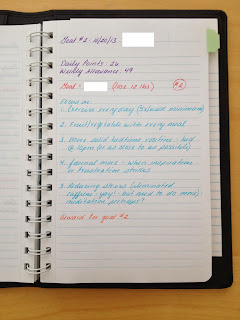 Goal #2 - 10/20/13 -
Daily Points: 26
Weekly Allowance: 49
Goal = (lose 12 lbs) #2
Focus on:
1. Exercise everyday (5x/week minimum)
2. Fruit/vegetable with every meal
3. More solid bedtime routine - bed
@ 10pm (or as close to as possible)
4. Journal more - when inspiration
or frustration strikes
5. Reducing stress (eliminated
caffeine - yay! - but need to do more)
meditation perhaps?
Reward for goal #2